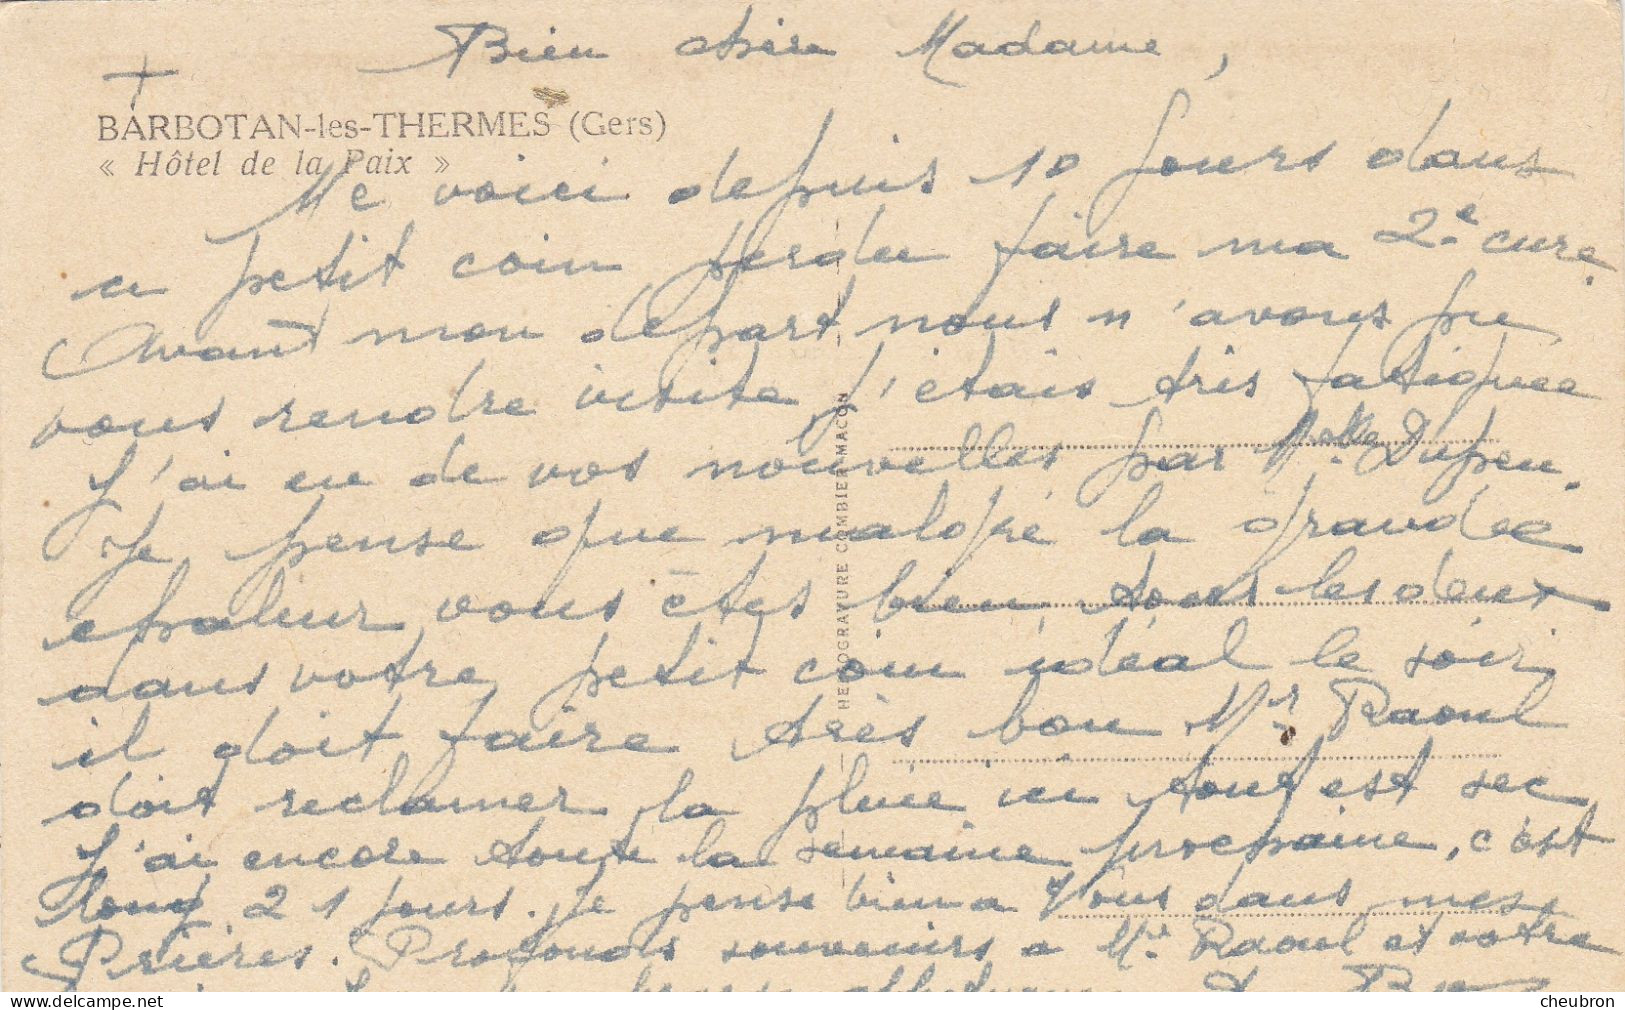 Bien chère Madame,
BARBOTAN-les-THERMES (Gers)
« Hôtel de la Paix »
Me voici depuis 10 jours dans
ce petit coin perdu faire ma 2e cure.
Avant mon départ nous n'avons pu
vous rendre visite j'étais très fatiguée
J'ai eu de vos nouvelles par Melle Dupeu.
Je pense que malgré la grande
chaleur vous êtes bien tous les deux
dans votre petit coin idéal le soir
il doit faire très bon Mr Raoul
doit réclamer la pluie ici tout est sec
J'ai encore toute la semaine prochaine, c'est
long 21 jours. Je pense bien a Vous dans mes
Prières. Profonds souvenirs a Mr Raoul et votre
HELIOGRAVURE COMBIER MACON
cheubron.com